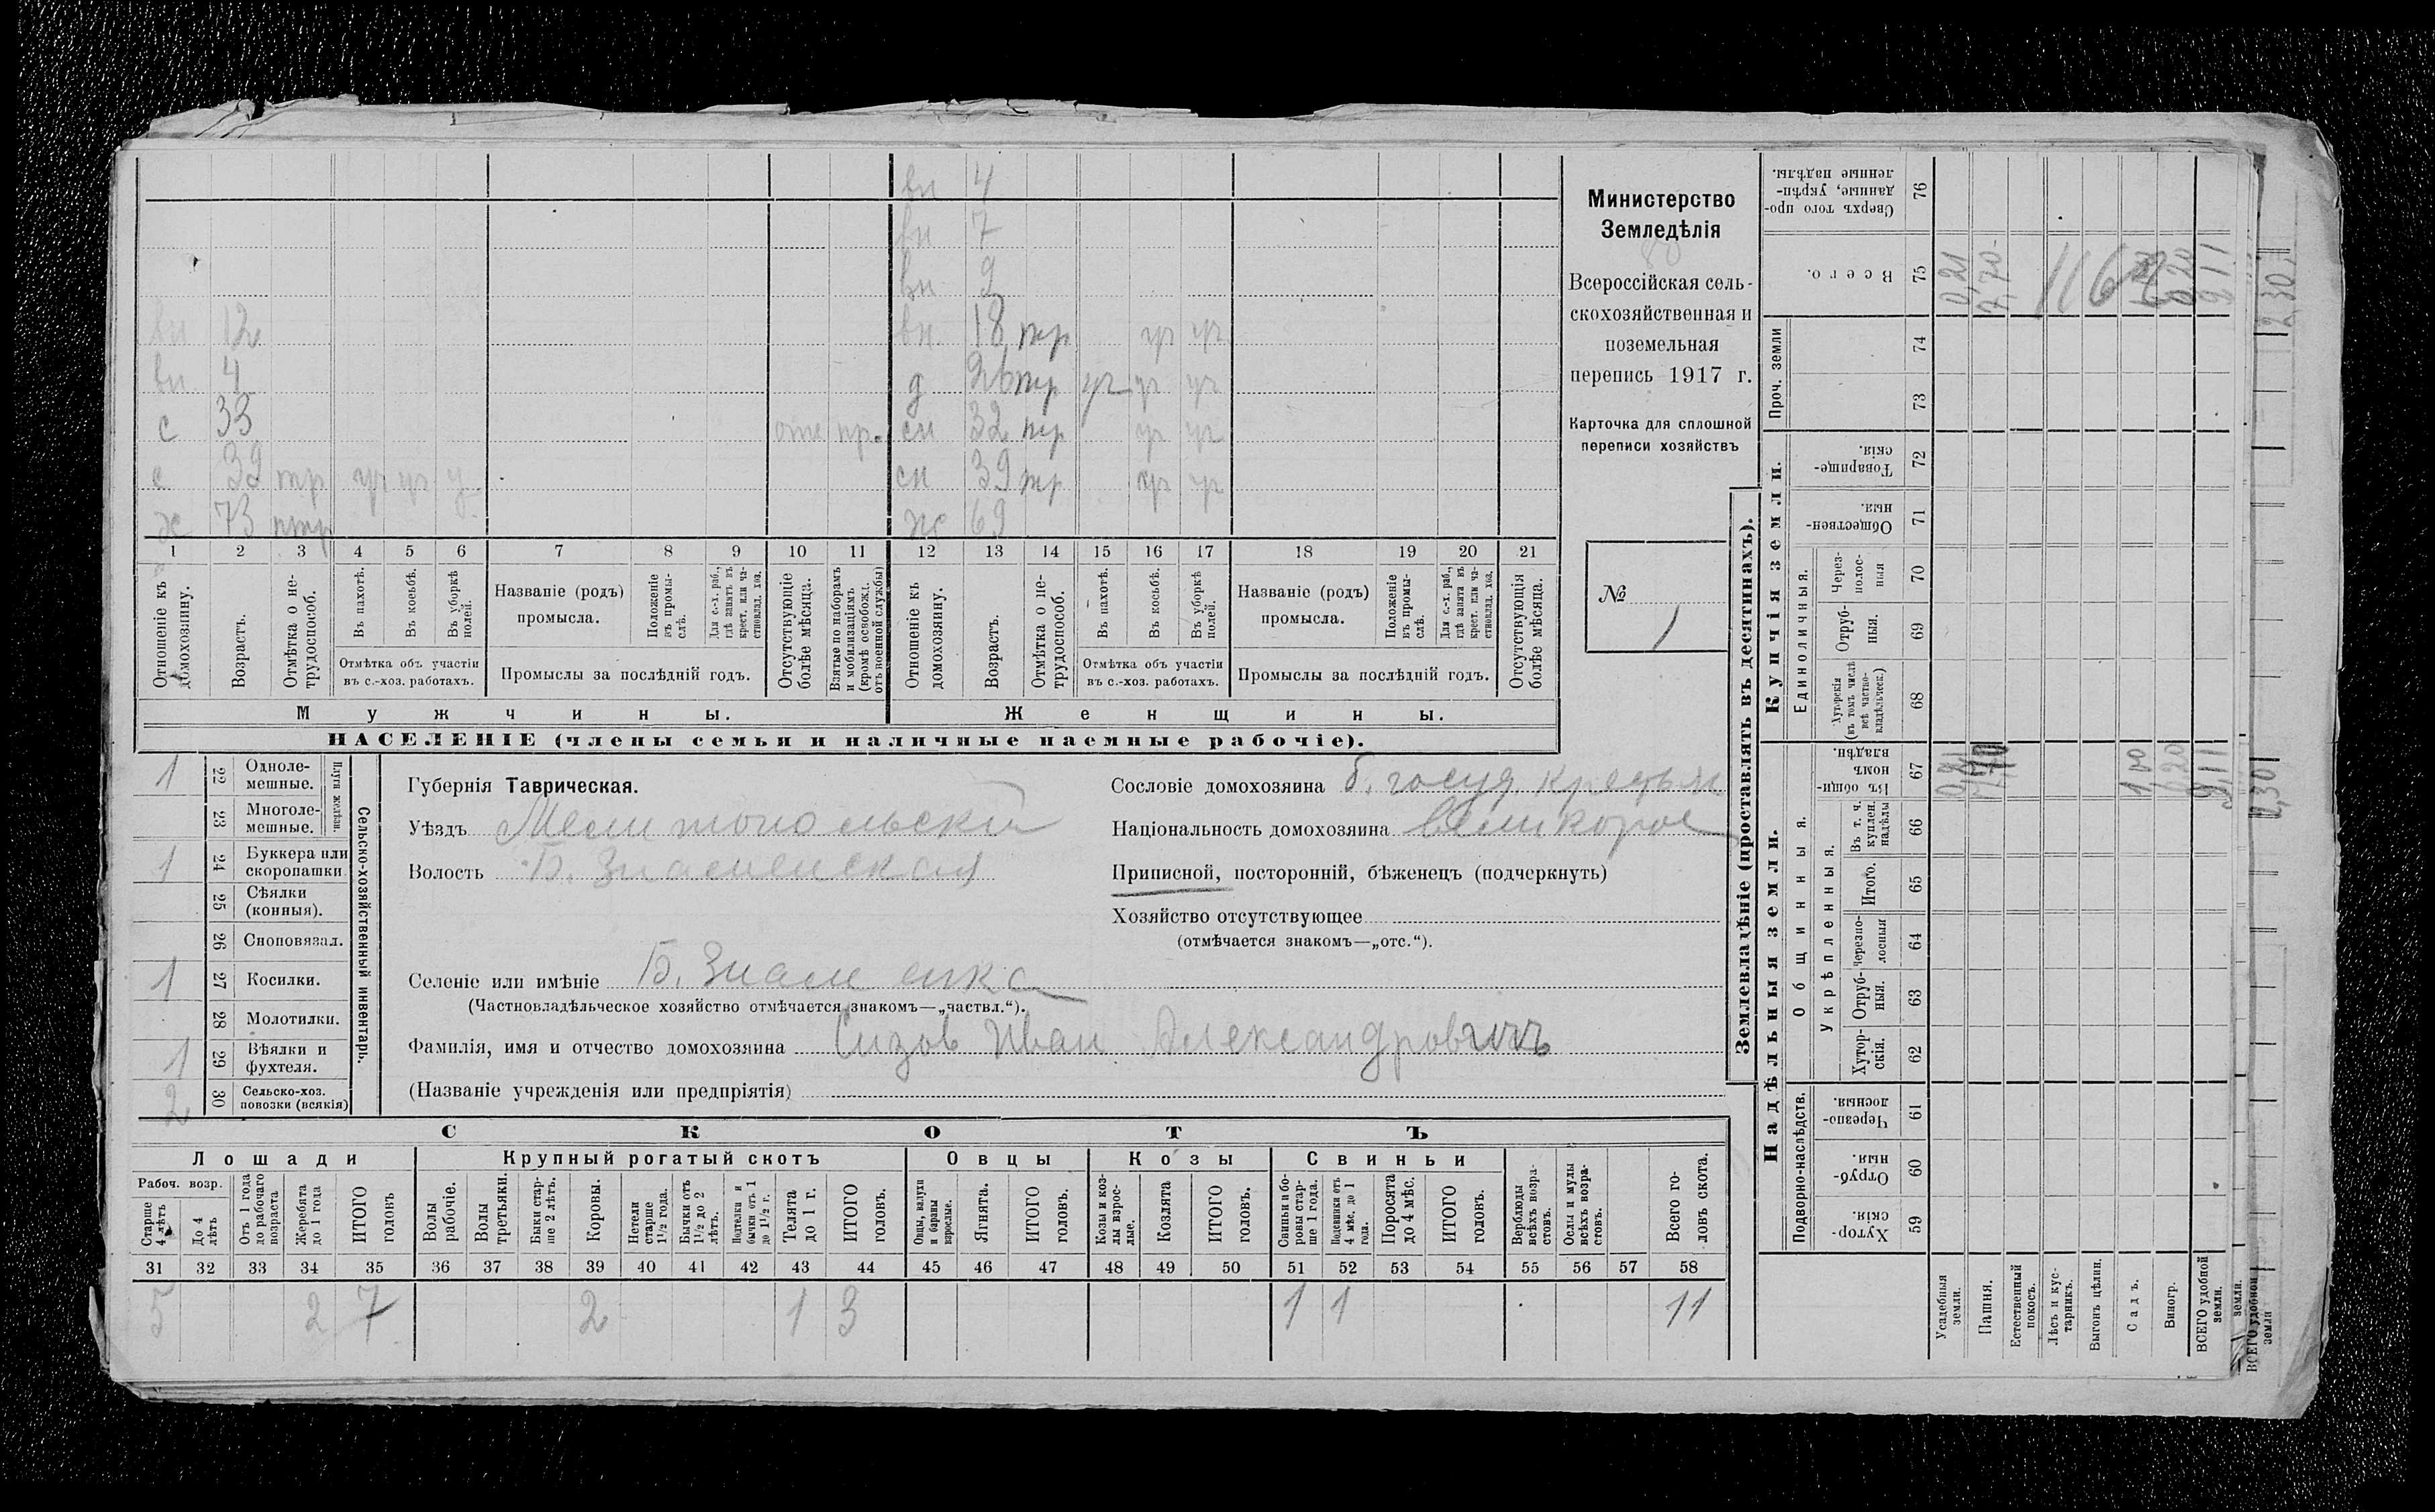 вн 4
вн 7
вн 9
вн 12 вн 18 тр уч уч
вн 4 д 26 тр уч уч уч
с 33 отс пр. сн 32 тр уч уч
с 39 тр уч уч у сн 39 тр уч уч
х 73 птр ж 69
1 2 3 4 5 6 7 8 9 10 11 12 13 14 15 16 17 18 19 20 21
Отношеніе къ домохозяину.
Возрастъ.
Отмѣтка о не-трудоспособ.
Въ пахотѣ.
Въ косьбѣ.
Въ уборкѣ полей.
Отмѣтка объ участіи
въ с.-хоз. работахъ.
Названіе (родъ)
промысла.
Положеніе въ промы-слѣ.
Для с.-х. раб., гдѣ занятъ въ крест. или ча-стновлад. хоз.
Промыслы за послѣдній годъ.
Отсутствующіе болѣе мѣсяца.
Взятые по наборамъ и мобилизаціямъ (кромѣ освобожд. отъ военной службы)
Отношеніе къ домохозяину.
Возрастъ.
Отмѣтка о не-трудоспособ.
Въ пахотѣ.
Въ косьбѣ.
Въ уборкѣ полей.
Отмѣтка объ участіи
въ с.-хоз. работахъ.
Названіе (родъ)
промысла.
Положеніе въ промы-слѣ.
Для с.-х. раб., гдѣ занята въ крест. или ча-стновлад. хоз.
Промыслы за послѣдній годъ.
Отсутствующія болѣе мѣсяца.
Мужчины. Женщины.
НАСЕЛЕНІЕ (члены семьи и наличные наемные рабочіе).
Министерство
Земледѣлія
Всероссійская сель-
скохозяйственная и
поземельная
перепись 1917 г.
Карточка для сплошной
переписи хозяйствъ
№
1
1 22 Одноле-мешные.
23 Многоле-мешные.
Плуги желѣзн.
1 24 Буккера или скоропашки
25 Сѣялки (конныя).
26 Сноповязал.
1 27 Косилки.
28 Молотилки.
1 29 Вѣялки и фухтеля.
2 30 Сельско-хоз. повозки (всякія)
Сельско-хозяйственный инвентарь.
Губернія Таврическая.
Уѣздъ Мелитопольскій
Волость Б. Знаменская
Селеніе или имѣніе Б. Знаменка
(Частновладѣльческое хозяйство отмѣчается знакомъ—„частвл.“).
Фамилія, имя и отчество домохозяина Сизов Иван Александровичъ
(Названіе учрежденія или предпріятія)
Сословіе домохозяина б. госуд крестьян
Національность домохозяина великорос
Приписной, посторонній, бѣженецъ (подчеркнуть)
Хозяйство отсутствующее
(отмѣчается знакомъ—„отс.“).
СКОТЪ
Лошади Крупный рогатый скотъ Овцы Козы Свиньи
Рабоч. возр.
Старше 4 лѣтъ
До 4 лѣтъ
Отъ 1 года до рабочаго возраста
Жеребята до 1 года
ИТОГО головъ
Волы рабочіе.
Волы третьяки.
Быки стар-ше 2 лѣтъ.
Коровы.
Нетели старше 1½ года.
Бычки отъ 1½ до 2 лѣтъ.
Подтелки и бычки отъ 1 до 1½ г.
Телята до 1 г.
ИТОГО головъ.
Овцы, валухи и бараны взрослые.
Ягнята.
ИТОГО головъ.
Козы и коз-лы взрос-лые.
Козлята
ИТОГО головъ.
Свиньи и бо-ровы стар-ше 1 года.
Подсвинки отъ 4 мѣс. до 1 года.
Поросята до 4 мѣс.
ИТОГО головъ.
Верблюды всѣхъ возра-стовъ.
Ослы и мулы всѣхъ возра-стовъ.
Всего го-ловъ скота.
31 32 33 34 35 36 37 38 39 40 41 42 43 44 45 46 47 48 49 50 51 52 53 54 55 56 57 58
5 2 7 2 1 3 1 1 11
Землевладѣніе (проставлять въ десятинахъ).
Купчія земли.
Надѣльныя земли.
Сверхъ того про-данные, укрѣп-ленные надѣлы. 76
Всего. 75
Проч. земли 74 73
Товарище-скія. 72
Обществен-ныя. 71
Единоличныя.
Через-полос-ныя 70
Отруб-ныя. 69
Хуторскія (въ томъ числѣ всѣ частно-владѣльческ.) 68
Общинныя.
Въ общи-номъ владѣн. 67
Укрѣпленныя.
Въ т. ч. куплен. надѣлы 66
Итого. 65
Черезпо-лосныя 64
Отруб-ныя. 63
Хутор-скія. 62
Подворно-наслѣдств.
Черезпо-лосныя. 61
Отруб-ныя. 60
Хутор-скія. 59
Усадебныя земли. 0,21
Пашня. 7,70
Естественный покосъ.
Лѣсъ и кус-тарникъ.
Выгонъ цѣлин.
Садъ. 1,00
Виногр. 0,20
ВСЕГО удобной земли. 9,11
116
земли.
ВСЕГО удобной земли
2,30
2,30